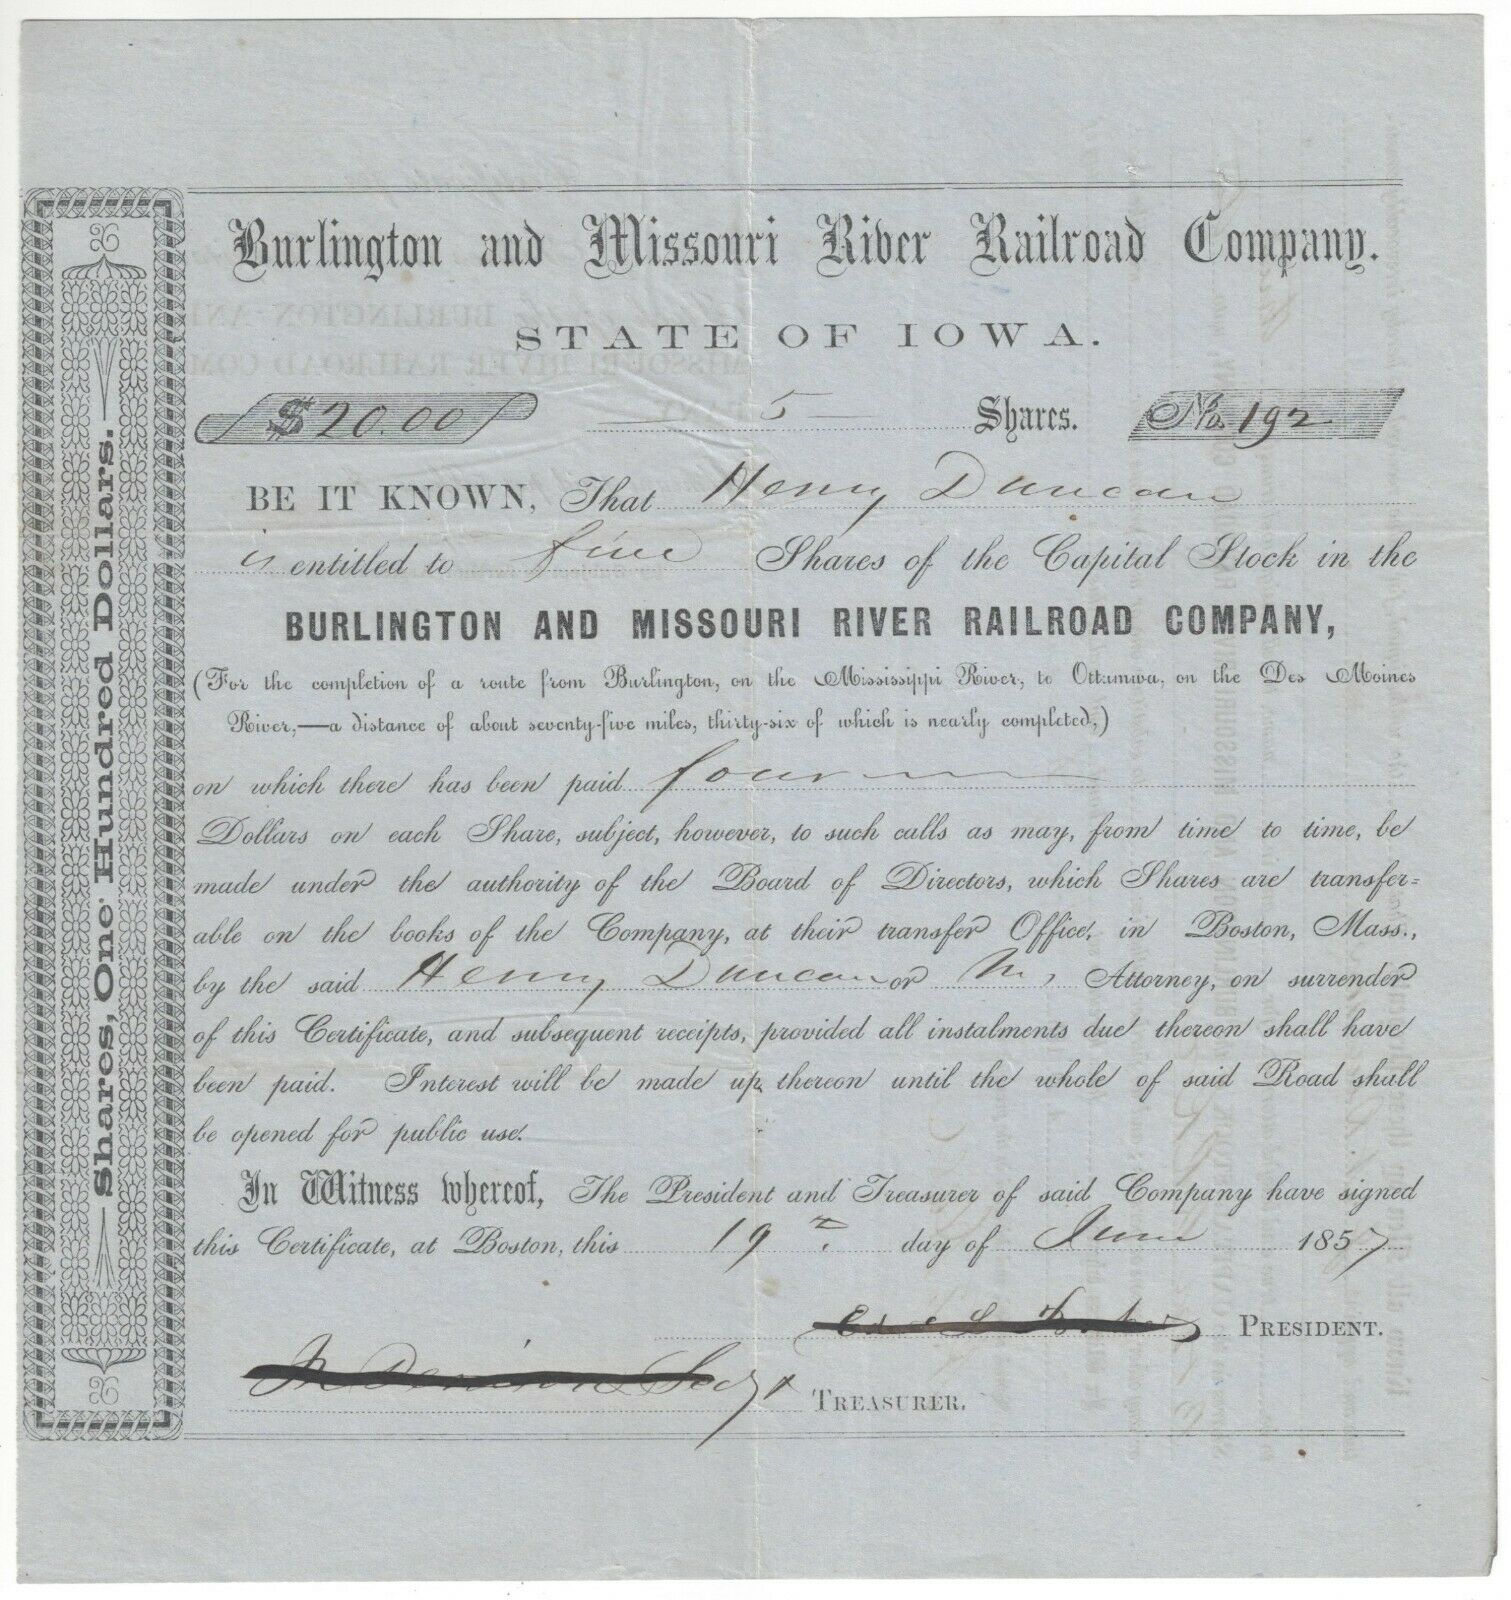 Burlington and Missouri River Railroad Company.
STATE OF IOWA.
$20.00 5 Shares. No. 192
BE IT KNOWN, That Henry Duncan
is entitled to five Shares of the Capital Stock in the
BURLINGTON AND MISSOURI RIVER RAILROAD COMPANY,
(For the completion of a route from Burlington, on the Mississippi River, to Ottumwa, on the Des Moines
River,—a distance of about seventy-five miles, thirty-six of which is nearly completed,)
on which there has been paid four
Dollars on each Share, subject, however, to such calls as may, from time to time, be
made under the authority of the Board of Directors, which Shares are transfer=
able on the books of the Company, at their transfer Office, in Boston, Mass.,
by the said Henry Duncan or Attorney, on surrender
of this Certificate, and subsequent receipts, provided all instalments due thereon shall have
been paid. Interest will be made up thereon until the whole of said Road shall
be opened for public use.
In Witness whereof, The President and Treasurer of said Company have signed
this Certificate, at Boston, this 19th day of June 1857
PRESIDENT.
TREASURER.
Shares, One Hundred Dollars.